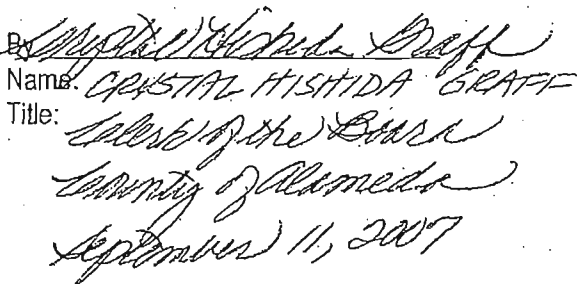 By Crystal Hishida Graff
Name: CRYSTAL HISHIDA GRAFF
Title:
Clerk of the Board
County of Alameda
September 11, 2007